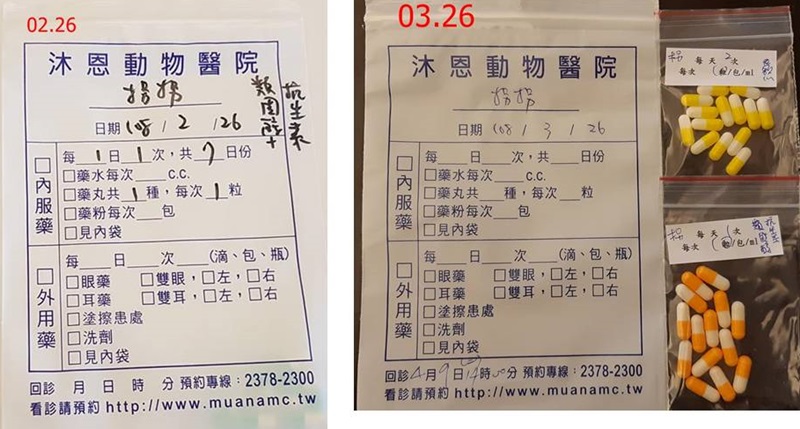 02.26
沐恩動物醫院
拐拐
類固醇+
抗生素
日期 108 / 2 / 26
內服藥
每 1 日 1 次，共 7 日份
□藥水每次___c.c.
□藥丸共 1 種，每次 1 粒
□藥粉每次___包
□見內袋
外用藥
每___日___次___(滴、包、瓶)
□眼藥 □雙眼，□左，□右
□耳藥 □雙耳，□左，□右
□塗擦患處
□洗劑
□見內袋
回診 月 日 時 分 預約專線：2378-2300
看診請預約 http://www.muanamc.tw
03.26
沐恩動物醫院
拐拐
日期 108 / 3 / 26
內服藥
每___日___次，共___日份
□藥水每次___c.c.
□藥丸共___種，每次___粒
□藥粉每次___包
□見內袋
外用藥
每___日___次___(滴、包、瓶)
□眼藥 □雙眼，□左，□右
□耳藥 □雙耳，□左，□右
□塗擦患處
□洗劑
□見內袋
回診 4 月 9 日 14 時 00 分 預約專線：2378-2300
看診請預約 http://www.muanamc.tw
每 天 2 次
每次 1 顆/包/ml
每 天 1 次
每次 1 顆/包/ml
抗生素
類固醇